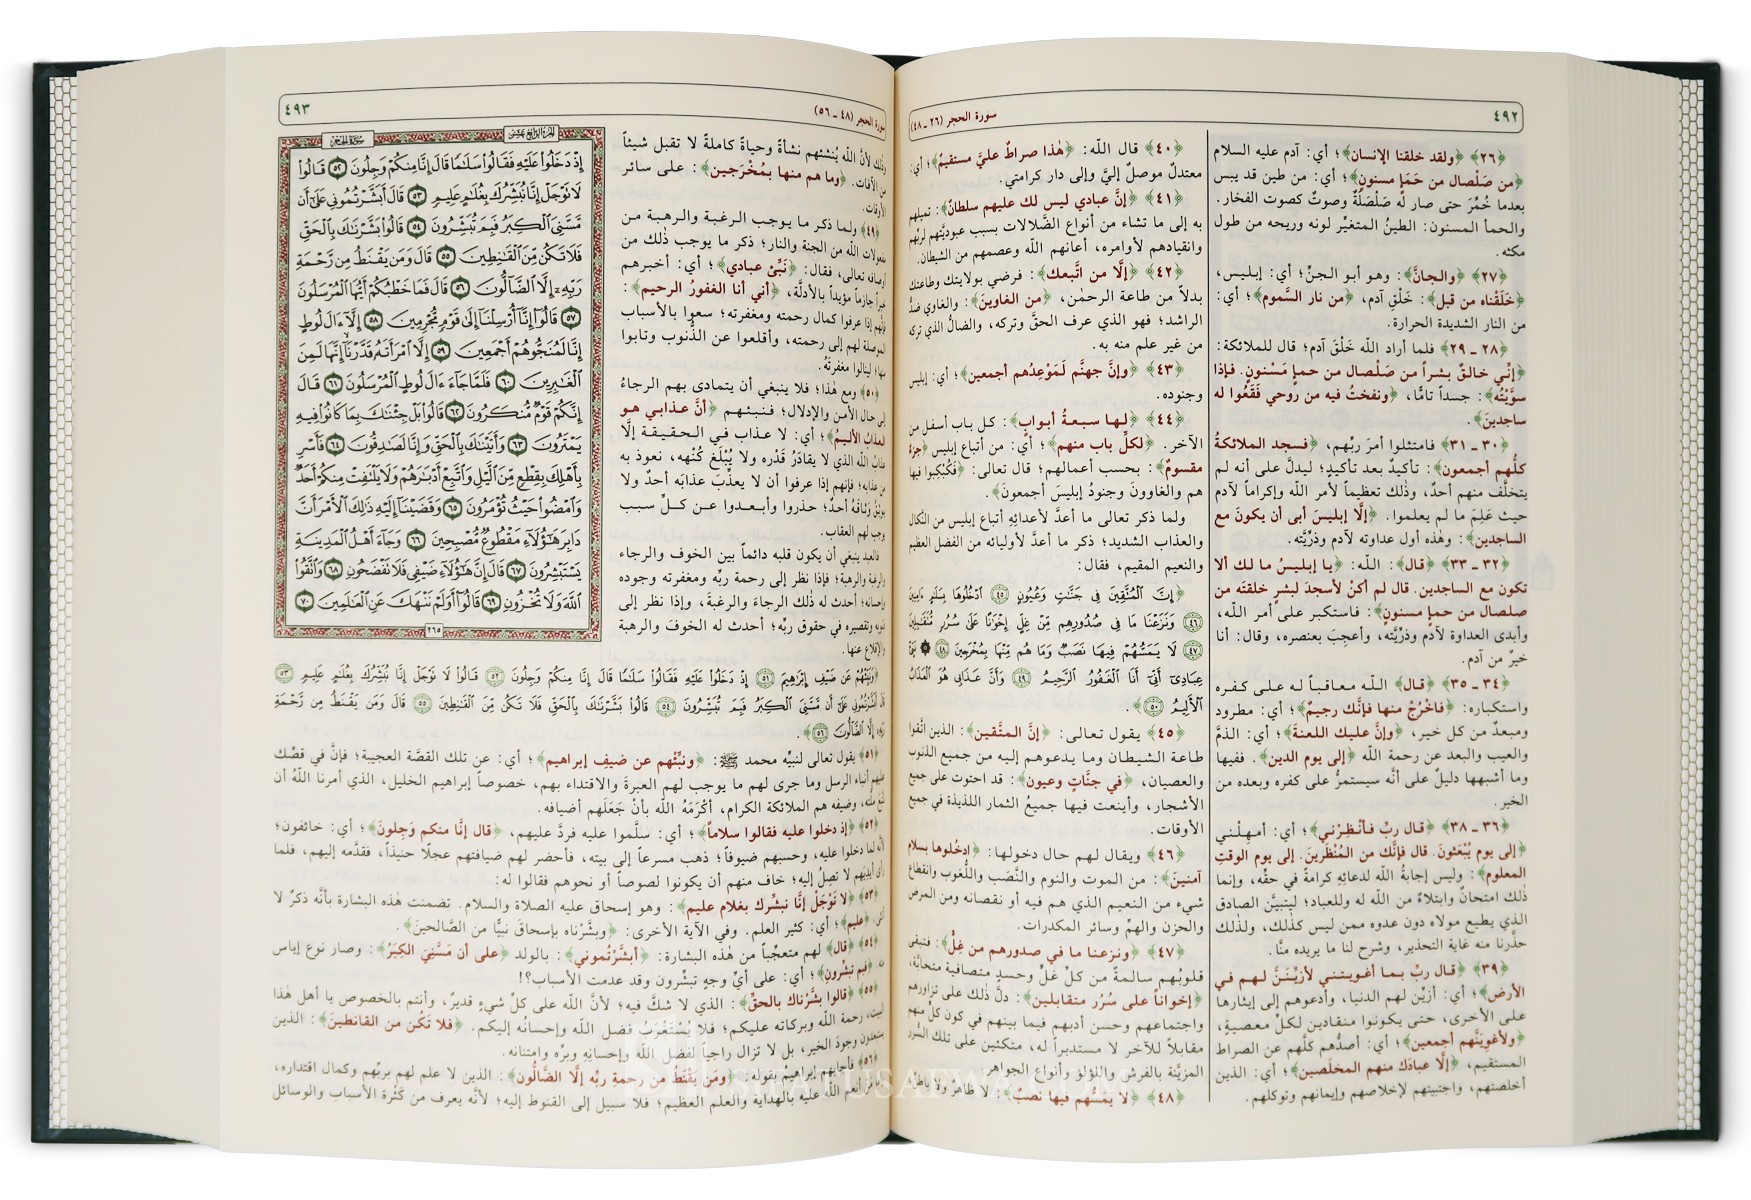 ٤٩٢
سورة الحجر (٢٦ ـ ٤٨)
﴿٢٦﴾ ﴿ولقد خلقنا الإنسان﴾؛ أي: آدم عليه السلام
﴿من صَلْصال من حَمَإٍ مسنونٍ﴾؛ أي: من طين قد يبس
بعدما خُمِّرَ حتى صار له صَلْصَلَةٌ وصوتٌ كصوت الفخار.
والحمأ المسنون: الطينُ المتغيِّر لونه وريحه من طول
مكثه.
﴿٢٧﴾ ﴿والجانَّ﴾: وهو أبو الجنِّ؛ أي: إبليس،
﴿خَلَقْناه من قبل﴾: خَلْقِ آدم، ﴿من نار السَّموم﴾؛ أي:
من النار الشديدة الحرارة.
﴿٢٨ ـ ٢٩﴾ فلما أراد الله خَلْقَ آدم؛ قال للملائكة:
﴿إنِّي خالقٌ بشراً من صَلْصال من حمإٍ مَسْنونٍ. فإذا
سوَّيْتُه﴾: جسداً تامًّا، ﴿ونفختُ فيه من روحي فَقَعُوا له
ساجدينَ﴾.
﴿٣٠ ـ ٣١﴾ فامتثلوا أمرَ ربِّهم، ﴿فسجد الملائكةُ
كلُّهم أجمعون﴾: تأكيدٌ بعد تأكيدٍ؛ ليدلَّ على أنه لم
يتخلَّف منهم أحدٌ، وذٰلك تعظيماً لأمر الله وإكراماً لآدم
حيث عَلِمَ ما لم يعلموا. ﴿إلَّا إبليسَ أبى أن يكونَ مع
الساجدين﴾: وهذه أول عداوته لآدم وذرِّيَّته.
﴿٣٢ ـ ٣٣﴾ ﴿قال﴾: اللّٰه: ﴿يا إبليسُ ما لك ألا
تكون مع الساجدين. قال لم أكنْ لأسجدَ لبشرٍ خلقتَه من
صلصال من حمإٍ مسنونٍ﴾: فاستكبر على أمر الله،
وأبدى العداوة لآدم وذرِّيَّته، وأعجِبَ بعنصره، وقال: أنا
خيرٌ من آدم.
﴿٣٤ ـ ٣٥﴾ ﴿قال﴾ الله معاقباً له على كفره
واستكباره: ﴿فاخْرُجْ منها فإنَّك رجيمٌ﴾؛ أي: مطرود
ومبعدٌ من كل خير، ﴿وإنَّ عليك اللعنةَ﴾؛ أي: الذمَّ
والعيب والبعد عن رحمة الله ﴿إلى يوم الدين﴾. ففيها
وما أشبهها دليلٌ على أنَّه سيستمرُّ على كفره وبعده من
الخير.
﴿٣٦ ـ ٣٨﴾ ﴿قال ربِّ فأنْظِرْني﴾؛ أي: أمهِلْني
﴿إلى يوم يُبْعَثونَ. قال فإنَّك من المُنْظَرينَ. إلى يوم الوقتِ
المعلوم﴾: وليس إجابةُ الله لدعائِهِ كرامةً في حقِّه، وإنما
ذٰلك امتحانٌ وابتلاءٌ من الله له وللعباد؛ ليتبيَّن الصادق
الذي يطيع مولاه دون عدوه ممن ليس كذٰلك، ولذٰلك
حذَّرنا منه غاية التحذير، وشرح لنا ما يريده منَّا.
﴿٣٩﴾ ﴿قال ربِّ بما أغويتني لأزيِّنَنَّ لهم في
الأرض﴾؛ أي: أزيِّن لهم الدنيا، وأدعوهم إلى إيثارها
على الأخرى، حتى يكونوا منقادين لكلِّ معصيةٍ،
﴿ولأغوِيَنَّهم أجمعين﴾؛ أي: أصدُّهم كلَّهم عن الصراط
المستقيم، ﴿إلَّا عبادَك منهم المخلَصين﴾؛ أي: الذين
أخلصتهم، واجتبيتهم لإخلاصهم وإيمانهم وتوكلهم.
﴿٤٠﴾ قال اللّٰه: ﴿هٰذا صراطٌ عليَّ مستقيمٌ﴾؛ أي:
معتدلٌ موصلٌ إليَّ وإلى دار كرامتي.
﴿٤١﴾ ﴿إنَّ عبادي ليس لك عليهم سلطانٌ﴾: تميلهم
به إلى ما تشاء من أنواع الضَّلالات بسبب عبوديَّتهم لربِّهم
وانقيادهم لأوامره، أعانهم الله وعصمهم من الشيطان.
﴿٤٢﴾ ﴿إلَّا من اتَّبعك﴾: فرضي بولايتك وطاعتك
بدلاً من طاعة الرحمٰن، ﴿من الغاوينَ﴾: والغاوي ضدُّ
الراشد؛ فهو الذي عرف الحقَّ وتركه، والضالُّ الذي تركه
من غير علم منه به.
﴿٤٣﴾ ﴿وإنَّ جهنَّم لَمَوْعِدُهم أجمعين﴾؛ أي: إبليس
وجنوده.
﴿٤٤﴾ ﴿لها سبعةُ أبوابٍ﴾: كل باب أسفل من
الآخر. ﴿لكلِّ باب منهم﴾؛ أي: من أتباع إبليس ﴿جزءٌ
مقسومٌ﴾: بحسب أعمالهم؛ قال تعالى: ﴿فَكُبْكِبوا فيها
هم والغاوونَ وجنودُ إبليسَ أجمعونَ﴾.
ولما ذكر تعالى ما أعدَّ لأعدائِهِ أتباع إبليس من النَّكال
والعذاب الشديد؛ ذكر ما أعدَّ لأوليائه من الفضل العظيم
والنعيم المقيم، فقال:
﴿إِنَّ الْمُتَّقِينَ فِى جَنَّٰتٍ وَعُيُونٍ ٤٥ ٱدْخُلُوهَا بِسَلَٰمٍ ءَامِنِينَ
٤٦ وَنَزَعْنَا مَا فِى صُدُورِهِم مِّنْ غِلٍّ إِخْوَٰنًا عَلَىٰ سُرُرٍ مُّتَقَٰبِلِينَ
٤٧ لَا يَمَسُّهُمْ فِيهَا نَصَبٌ وَمَا هُم مِّنْهَا بِمُخْرَجِينَ ٤٨ ۞ نَبِّئْ
عِبَادِىٓ أَنِّىٓ أَنَا الْغَفُورُ الرَّحِيمُ ٤٩ وَأَنَّ عَذَابِى هُوَ الْعَذَابُ
الْأَلِيمُ ٥٠﴾.
﴿٤٥﴾ يقول تعالى: ﴿إنَّ المتَّقين﴾: الذين اتَّقوا
طاعة الشيطان وما يدعوهم إليه من جميع الذنوب
والعصيان، ﴿في جنَّاتٍ وعيون﴾: قد احتوت على جميع
الأشجار، وأينعت فيها جميعُ الثمار اللذيذة في جميع
الأوقات.
﴿٤٦﴾ ويقال لهم حال دخولها: ﴿ادخُلوها بسلام
آمنينَ﴾: من الموت والنوم والنَّصَب واللُّغوب وانقطاع
شيء من النعيم الذي هم فيه أو نقصانه ومن المرض
والحزن والهمِّ وسائر المكدرات.
﴿٤٧﴾ ﴿ونزعنا ما في صدورهم من غِلٍّ﴾: فتبقى
قلوبهم سالمةً من كلِّ غلٍّ وحسدٍ متصافية متحابَّة،
﴿إخواناً على سُرُر متقابلين﴾: دلَّ ذٰلك على تزاورهم
واجتماعهم وحسن أدبهم فيما بينهم في كون كلٍّ منهم
مقابلاً للآخر لا مستدبراً له، متكئين على تلك السُّرر
المزيَّنة بالفرش واللؤلؤ وأنواع الجواهر.
﴿٤٨﴾ ﴿لا يَمَسُّهم فيها نصبٌ﴾: لا ظاهرٌ ولا باطنٌ
سورة الحجر (٤٨ ـ ٥٦)
٤٩٣
وذٰلك لأنَّ الله يُنشئهم نشأةً وحياةً كاملةً لا تقبل شيئاً
من الآفات. ﴿وما هم منها بمُخْرَجين﴾: على سائر
الأوقات.
﴿٤٩﴾ ولما ذكر ما يوجب الرغبة والرهبة من
مفعولات الله من الجنة والنار؛ ذكر ما يوجب ذٰلك من
أوصافه تعالى، فقال: ﴿نَبِّئْ عبادي﴾؛ أي: أخبرهم
خبراً جازماً مؤيداً بالأدلَّة، ﴿أني أنا الغفورُ الرحيم﴾:
فإنَّهم إذا عرفوا كمال رحمته ومغفرته؛ سعوا بالأسباب
الموصلة لهم إلى رحمته، وأقلعوا عن الذُّنوب وتابوا
منها؛ لينالوا مغفرتَهُ.
﴿٥٠﴾ ومع هٰذا؛ فلا ينبغي أن يتمادى بهم الرجاءُ
إلى حال الأمن والإدلال؛ فنبئهم ﴿أنَّ عذابي هو
العذابُ الأليمُ﴾؛ أي: لا عذاب في الحقيقة إلَّا
عذابُ الله الذي لا يقادَرُ قَدْره ولا يُبْلَغ كُنْهه، نعوذ به
من عذابه؛ فإنهم إذا عرفوا أن لا يعذِّبُ عذابَه أحدٌ ولا
يوثِقُ وَثاقَهُ أحدٌ؛ حذروا وأبعدوا عن كلِّ سبب
يوجب لهم العقاب.
فالعبد ينبغي أن يكون قلبه دائماً بين الخوف والرجاء
والرغبة والرهبة؛ فإذا نظر إلى رحمة ربِّه ومغفرته وجوده
وإحسانه؛ أحدث له ذٰلك الرجاءَ والرغبةَ، وإذا نظر إلى
ذنوبه وتقصيره في حقوق ربِّه؛ أحدث له الخوفَ والرهبة
والإقلاع عنها.
الجزء الرابع عشر
سورة الحجر
إِذْ دَخَلُوا۟ عَلَيْهِ فَقَالُوا۟ سَلَٰمًا قَالَ إِنَّا مِنكُمْ وَجِلُونَ ٥٢ قَالُوا۟
لَا تَوْجَلْ إِنَّا نُبَشِّرُكَ بِغُلَٰمٍ عَلِيمٍ ٥٣ قَالَ أَبَشَّرْتُمُونِى عَلَىٰٓ أَن
مَّسَّنِىَ ٱلْكِبَرُ فَبِمَ تُبَشِّرُونَ ٥٤ قَالُوا۟ بَشَّرْنَٰكَ بِٱلْحَقِّ
فَلَا تَكُن مِّنَ ٱلْقَٰنِطِينَ ٥٥ قَالَ وَمَن يَقْنَطُ مِن رَّحْمَةِ
رَبِّهِۦٓ إِلَّا ٱلضَّآلُّونَ ٥٦ قَالَ فَمَا خَطْبُكُمْ أَيُّهَا ٱلْمُرْسَلُونَ
٥٧ قَالُوٓا۟ إِنَّآ أُرْسِلْنَآ إِلَىٰ قَوْمٍ مُّجْرِمِينَ ٥٨ إِلَّآ ءَالَ لُوطٍ
إِنَّا لَمُنَجُّوهُمْ أَجْمَعِينَ ٥٩ إِلَّا ٱمْرَأَتَهُۥ قَدَّرْنَآ إِنَّهَا لَمِنَ
ٱلْغَٰبِرِينَ ٦٠ فَلَمَّا جَآءَ ءَالَ لُوطٍ ٱلْمُرْسَلُونَ ٦١ قَالَ
إِنَّكُمْ قَوْمٌ مُّنكَرُونَ ٦٢ قَالُوا۟ بَلْ جِئْنَٰكَ بِمَا كَانُوا۟ فِيهِ
يَمْتَرُونَ ٦٣ وَأَتَيْنَٰكَ بِٱلْحَقِّ وَإِنَّا لَصَٰدِقُونَ ٦٤ فَأَسْرِ
بِأَهْلِكَ بِقِطْعٍ مِّنَ ٱلَّيْلِ وَٱتَّبِعْ أَدْبَٰرَهُمْ وَلَا يَلْتَفِتْ مِنكُمْ أَحَدٌ
وَٱمْضُوا۟ حَيْثُ تُؤْمَرُونَ ٦٥ وَقَضَيْنَآ إِلَيْهِ ذَٰلِكَ ٱلْأَمْرَ أَنَّ
دَابِرَ هَٰٓؤُلَآءِ مَقْطُوعٌ مُّصْبِحِينَ ٦٦ وَجَآءَ أَهْلُ ٱلْمَدِينَةِ
يَسْتَبْشِرُونَ ٦٧ قَالَ إِنَّ هَٰٓؤُلَآءِ ضَيْفِى فَلَا تَفْضَحُونِ ٦٨ وَٱتَّقُوا۟
ٱللَّهَ وَلَا تُخْزُونِ ٦٩ قَالُوٓا۟ أَوَلَمْ نَنْهَكَ عَنِ ٱلْعَٰلَمِينَ ٧٠
٢٦٥
﴿وَنَبِّئْهُمْ عَن ضَيْفِ إِبْرَٰهِيمَ ٥١ إِذْ دَخَلُوا۟ عَلَيْهِ فَقَالُوا۟ سَلَٰمًا قَالَ إِنَّا مِنكُمْ وَجِلُونَ ٥٢ قَالُوا۟ لَا تَوْجَلْ إِنَّا نُبَشِّرُكَ بِغُلَٰمٍ عَلِيمٍ ٥٣
قَالَ أَبَشَّرْتُمُونِى عَلَىٰٓ أَن مَّسَّنِىَ ٱلْكِبَرُ فَبِمَ تُبَشِّرُونَ ٥٤ قَالُوا۟ بَشَّرْنَٰكَ بِٱلْحَقِّ فَلَا تَكُن مِّنَ ٱلْقَٰنِطِينَ ٥٥ قَالَ وَمَن يَقْنَطُ مِن رَّحْمَةِ
رَبِّهِۦٓ إِلَّا ٱلضَّآلُّونَ ٥٦﴾.
﴿٥١﴾ يقول تعالى لنبيِّه محمد ﷺ: ﴿ونبِّئْهم عن ضيفِ إبراهيم﴾؛ أي: عن تلك القصَّة العجيبة؛ فإنَّ في قصِّك
عليهم أنباء الرسل وما جرى لهم ما يوجب لهم العبرةَ والاقتداء بهم، خصوصاً إبراهيم الخليل، الذي أمرنا اللّٰهُ أن
نتَّبع ملَّته، وضيفه هم الملائكة الكرام، أكْرَمَهُ الله بأنْ جَعَلَهم أضيافه.
﴿٥٢﴾ ﴿إذ دخلوا عليه فقالوا سلاماً﴾؛ أي: سلَّموا عليه فردَّ عليهم، ﴿قال إنَّا منكم وَجِلونَ﴾؛ أي: خائفون؛
لأنه لما دخلوا عليه، وحسبهم ضيوفاً؛ ذهب مسرعاً إلى بيته، فأحضر لهم ضيافتهم عجلاً حنيذاً، فقدَّمه إليهم، فلما
رأى أيديَهُم لا تصِلُ إليه؛ خاف منهم أن يكونوا لصوصاً أو نحوهم فقالوا له:
﴿٥٣﴾ ﴿لا تَوْجَلْ إنَّا نبشِّرك بغلام عليم﴾: وهو إسحاق عليه الصلاة والسلام. تضمنت هٰذه البشارة بأنَّه ذكرٌ لا
أنثى، ﴿عليم﴾؛ أي: كثير العلم. وفي الآية الأخرى: ﴿وبشَّرْناه بإسحاقَ نبيًّا من الصَّالحينَ﴾.
﴿٥٤﴾ ﴿قال﴾ لهم متعجِّباً من هٰذه البشارة: ﴿أبشَّرْتُموني﴾: بالولد ﴿على أن مَسَّنِيَ الكِبَرُ﴾: وصار نوع إياس
منه، ﴿فبم تبشِّرونِ﴾؛ أي: على أيِّ وجهٍ تبشِّرون وقد عدمت الأسباب؟!
﴿٥٥﴾ ﴿قالوا بشَّرْناك بالحقِّ﴾: الذي لا شكَّ فيه؛ لأنَّ الله على كلِّ شيءٍ قديرٌ، وأنتم بالخصوص يا أهل هٰذا
البيت، رحمة الله وبركاته عليكم؛ فلا يُسْتَغْرَبُ فضل الله وإحسانُه إليكم. ﴿فلا تَكُن من القانطينَ﴾: الذين
يستبعدون وجودَ الخير، بل لا تزال راجياً لفضل الله وإحسانِهِ وبرِّه وامتنانه.
﴿٥٦﴾ فأجابهم إبراهيمُ بقوله: ﴿ومَن يَقْنَطُ من رحمةِ ربِّه إلَّا الضَّالُّون﴾: الذين لا علم لهم بربِّهم وكمال اقتداره،
وأمَّا من أنعم الله عليه بالهداية والعلم العظيم؛ فلا سبيل إلى القنوط إليه؛ لأنَّه يعرف من كثرة الأسباب والوسائل
SIFATUSAFWA.COM